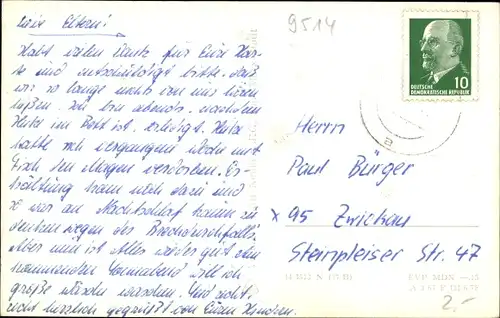 Liebe Eltern!
Habt vielen Dank für Eure Kar-
te und entschuldigt bitte, daß
wir so lange nichts von uns hören
ließen. Ich bin abends, nachdem
Heike im Bett ist, erledigt. Heike
hatte sich vergangene Woche mit
Fisch den Magen verdorben. Er-
kältung kam noch dazu und
so war an Nachtschlaf kaum zu
denken wegen des Brechdurchfalls.
Aber nun ist Alles wieder gut. Am
kommenden Sonnabend will ich
große Wäsche waschen. Und
recht herzlich gegrüßt von Euren Kindern.
9514
DEUTSCHE
DEMOKRATISCHE REPUBLIK
10
Herrn
Paul Bürger
x 95 Zwickau
Steinpleiser Str. 47
EVP MDN
2.-